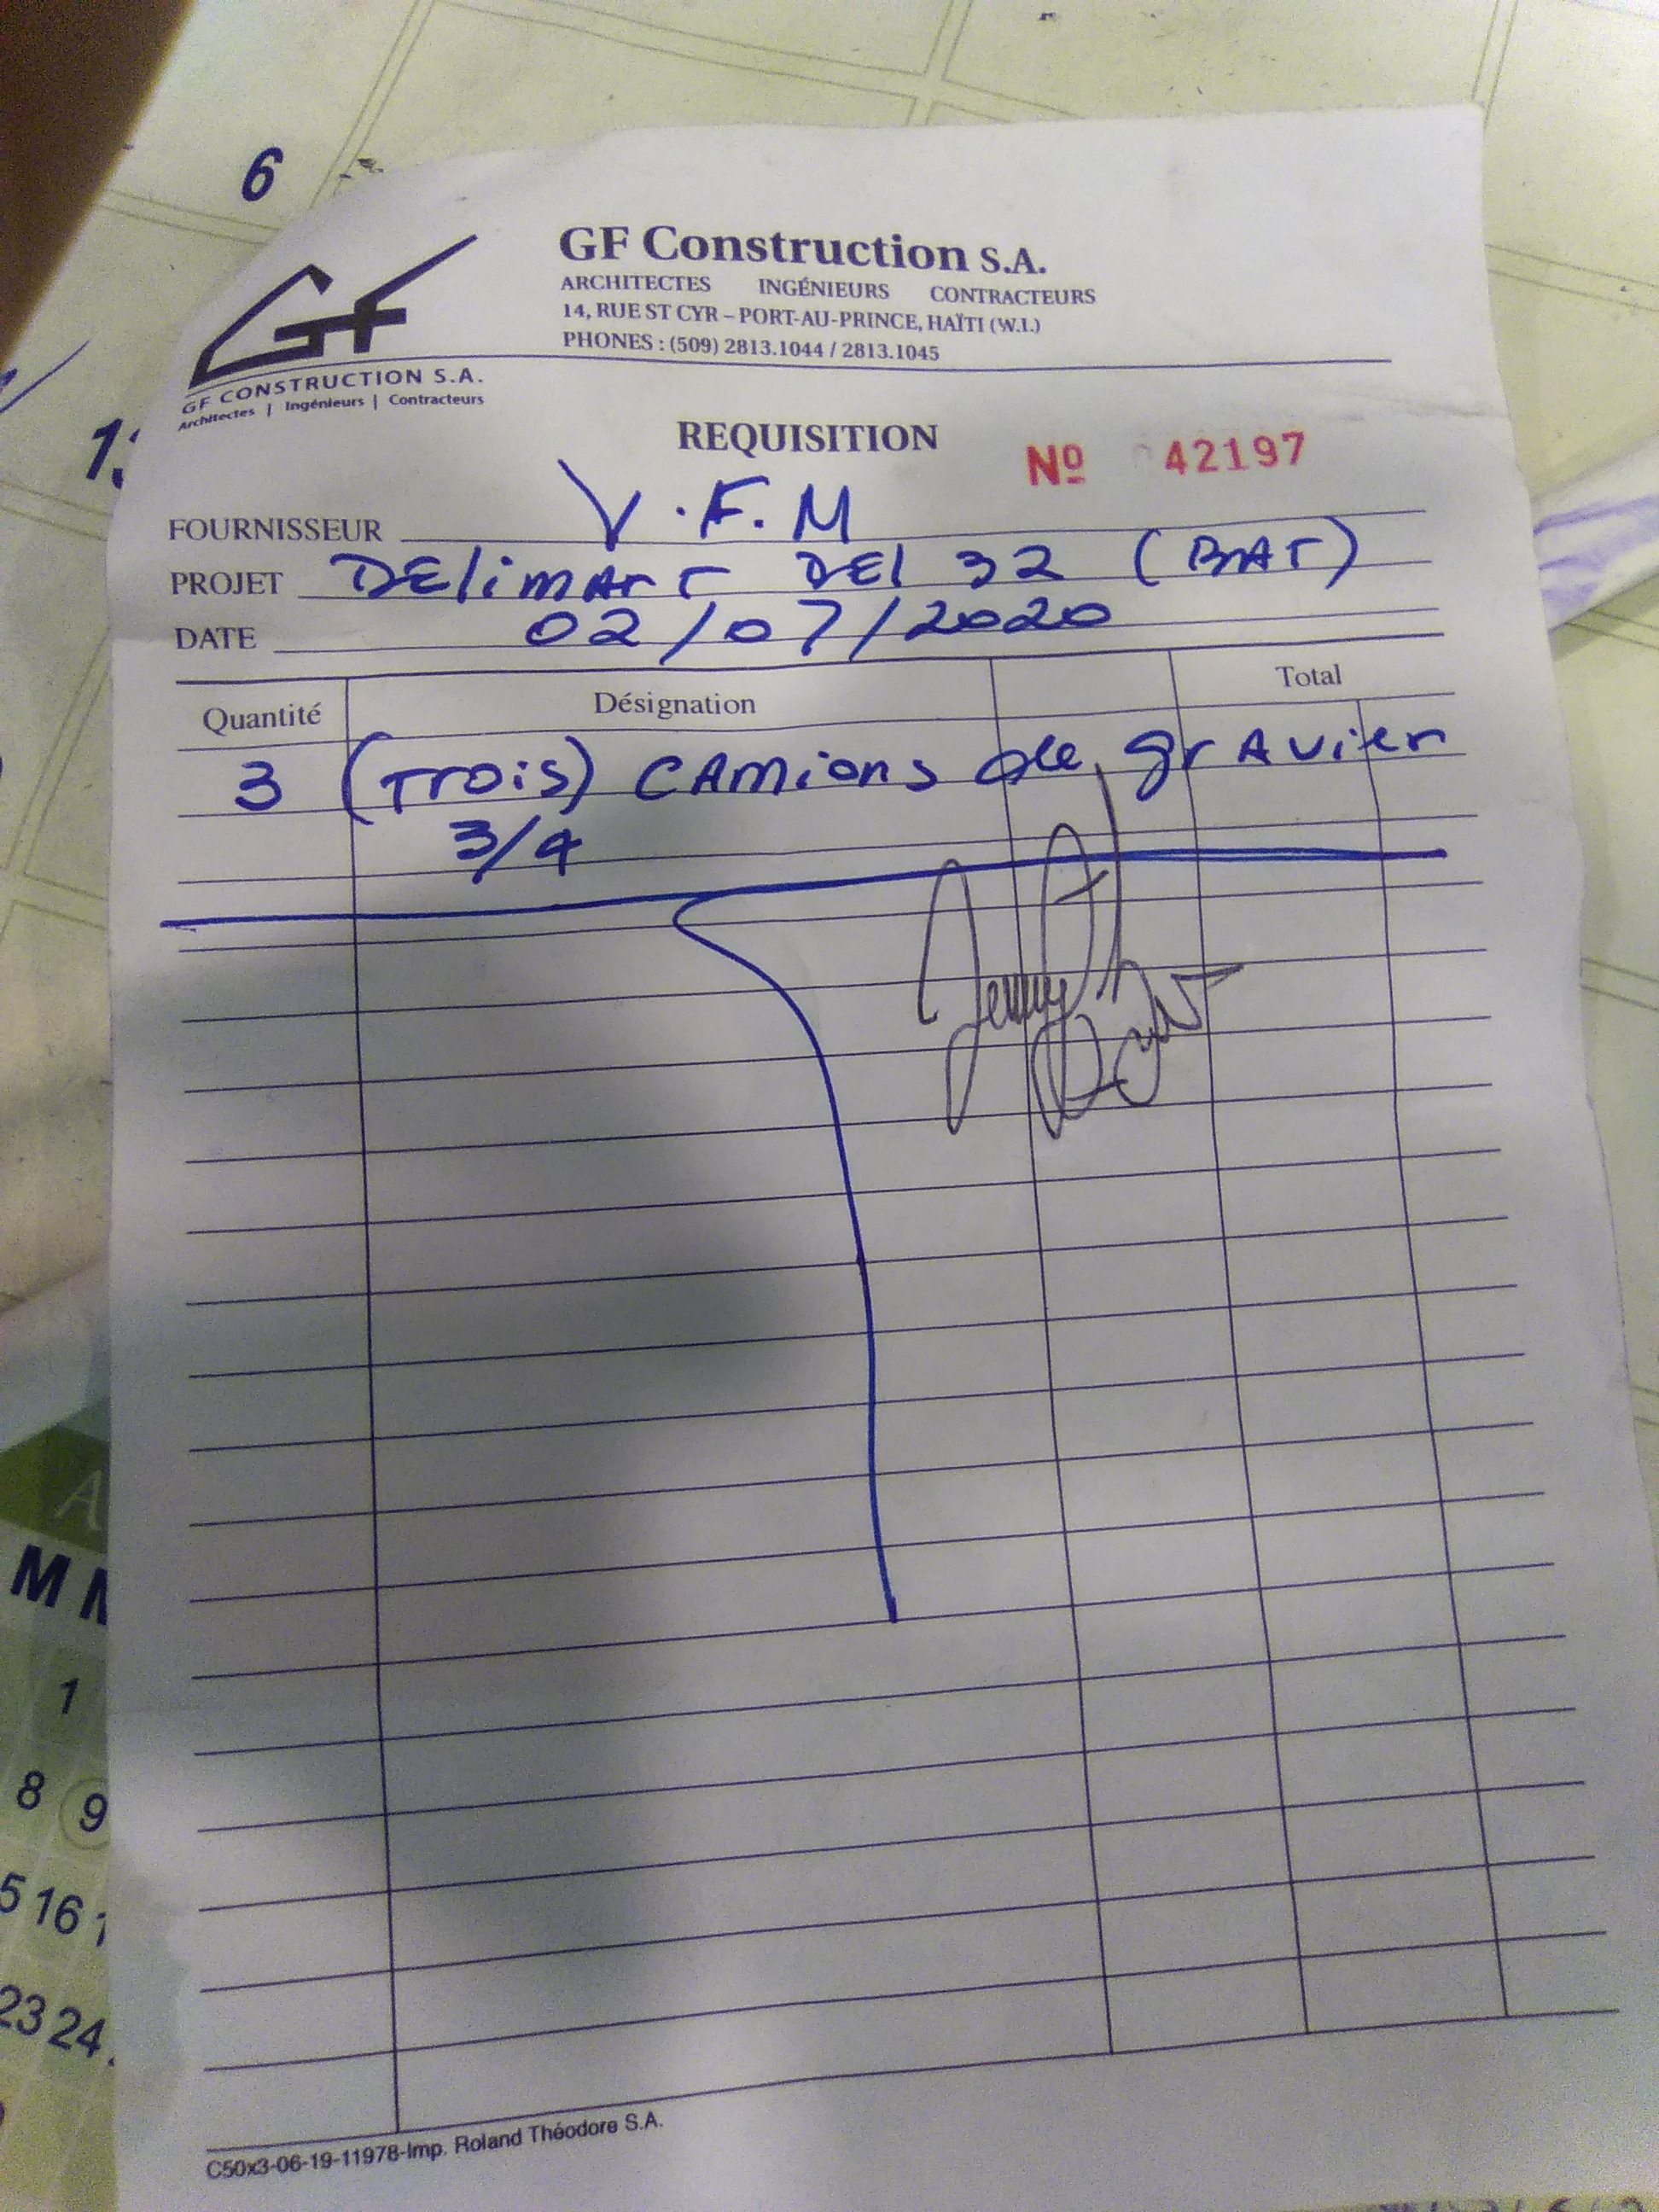 6
GF CONSTRUCTION S.A.
Architectes | Ingénieurs | Contracteurs
GF Construction S.A.
ARCHITECTES INGÉNIEURS CONTRACTEURS
14, RUE ST CYR – PORT-AU-PRINCE, HAÏTI (W.I.)
PHONES : (509) 2813.1044 / 2813.1045
REQUISITION
Nº 42197
FOURNISSEUR V.F.M
PROJET DElimArT DEl 32 (BAT)
DATE 02/07/2020
Quantité Désignation Total
3 (Trois) CAmions de grAvier
3/4
M
1
8 9
5 16
23 24
C50x3-06-19-11978-Imp. Roland Théodore S.A.